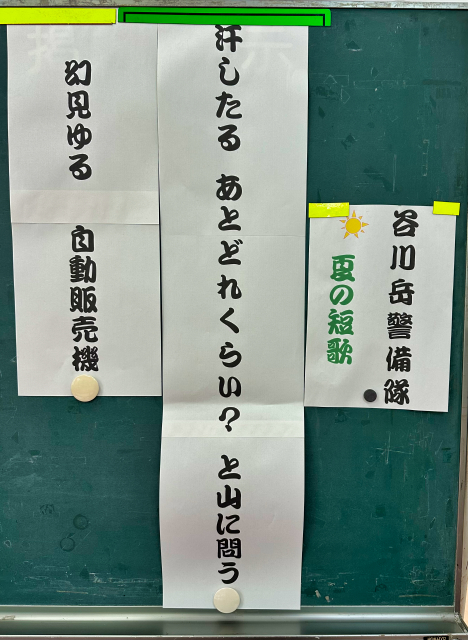 谷川岳警備隊
夏の短歌
汗したる　あとどれくらい？　と山に問う
幻見ゆる　自動販売機